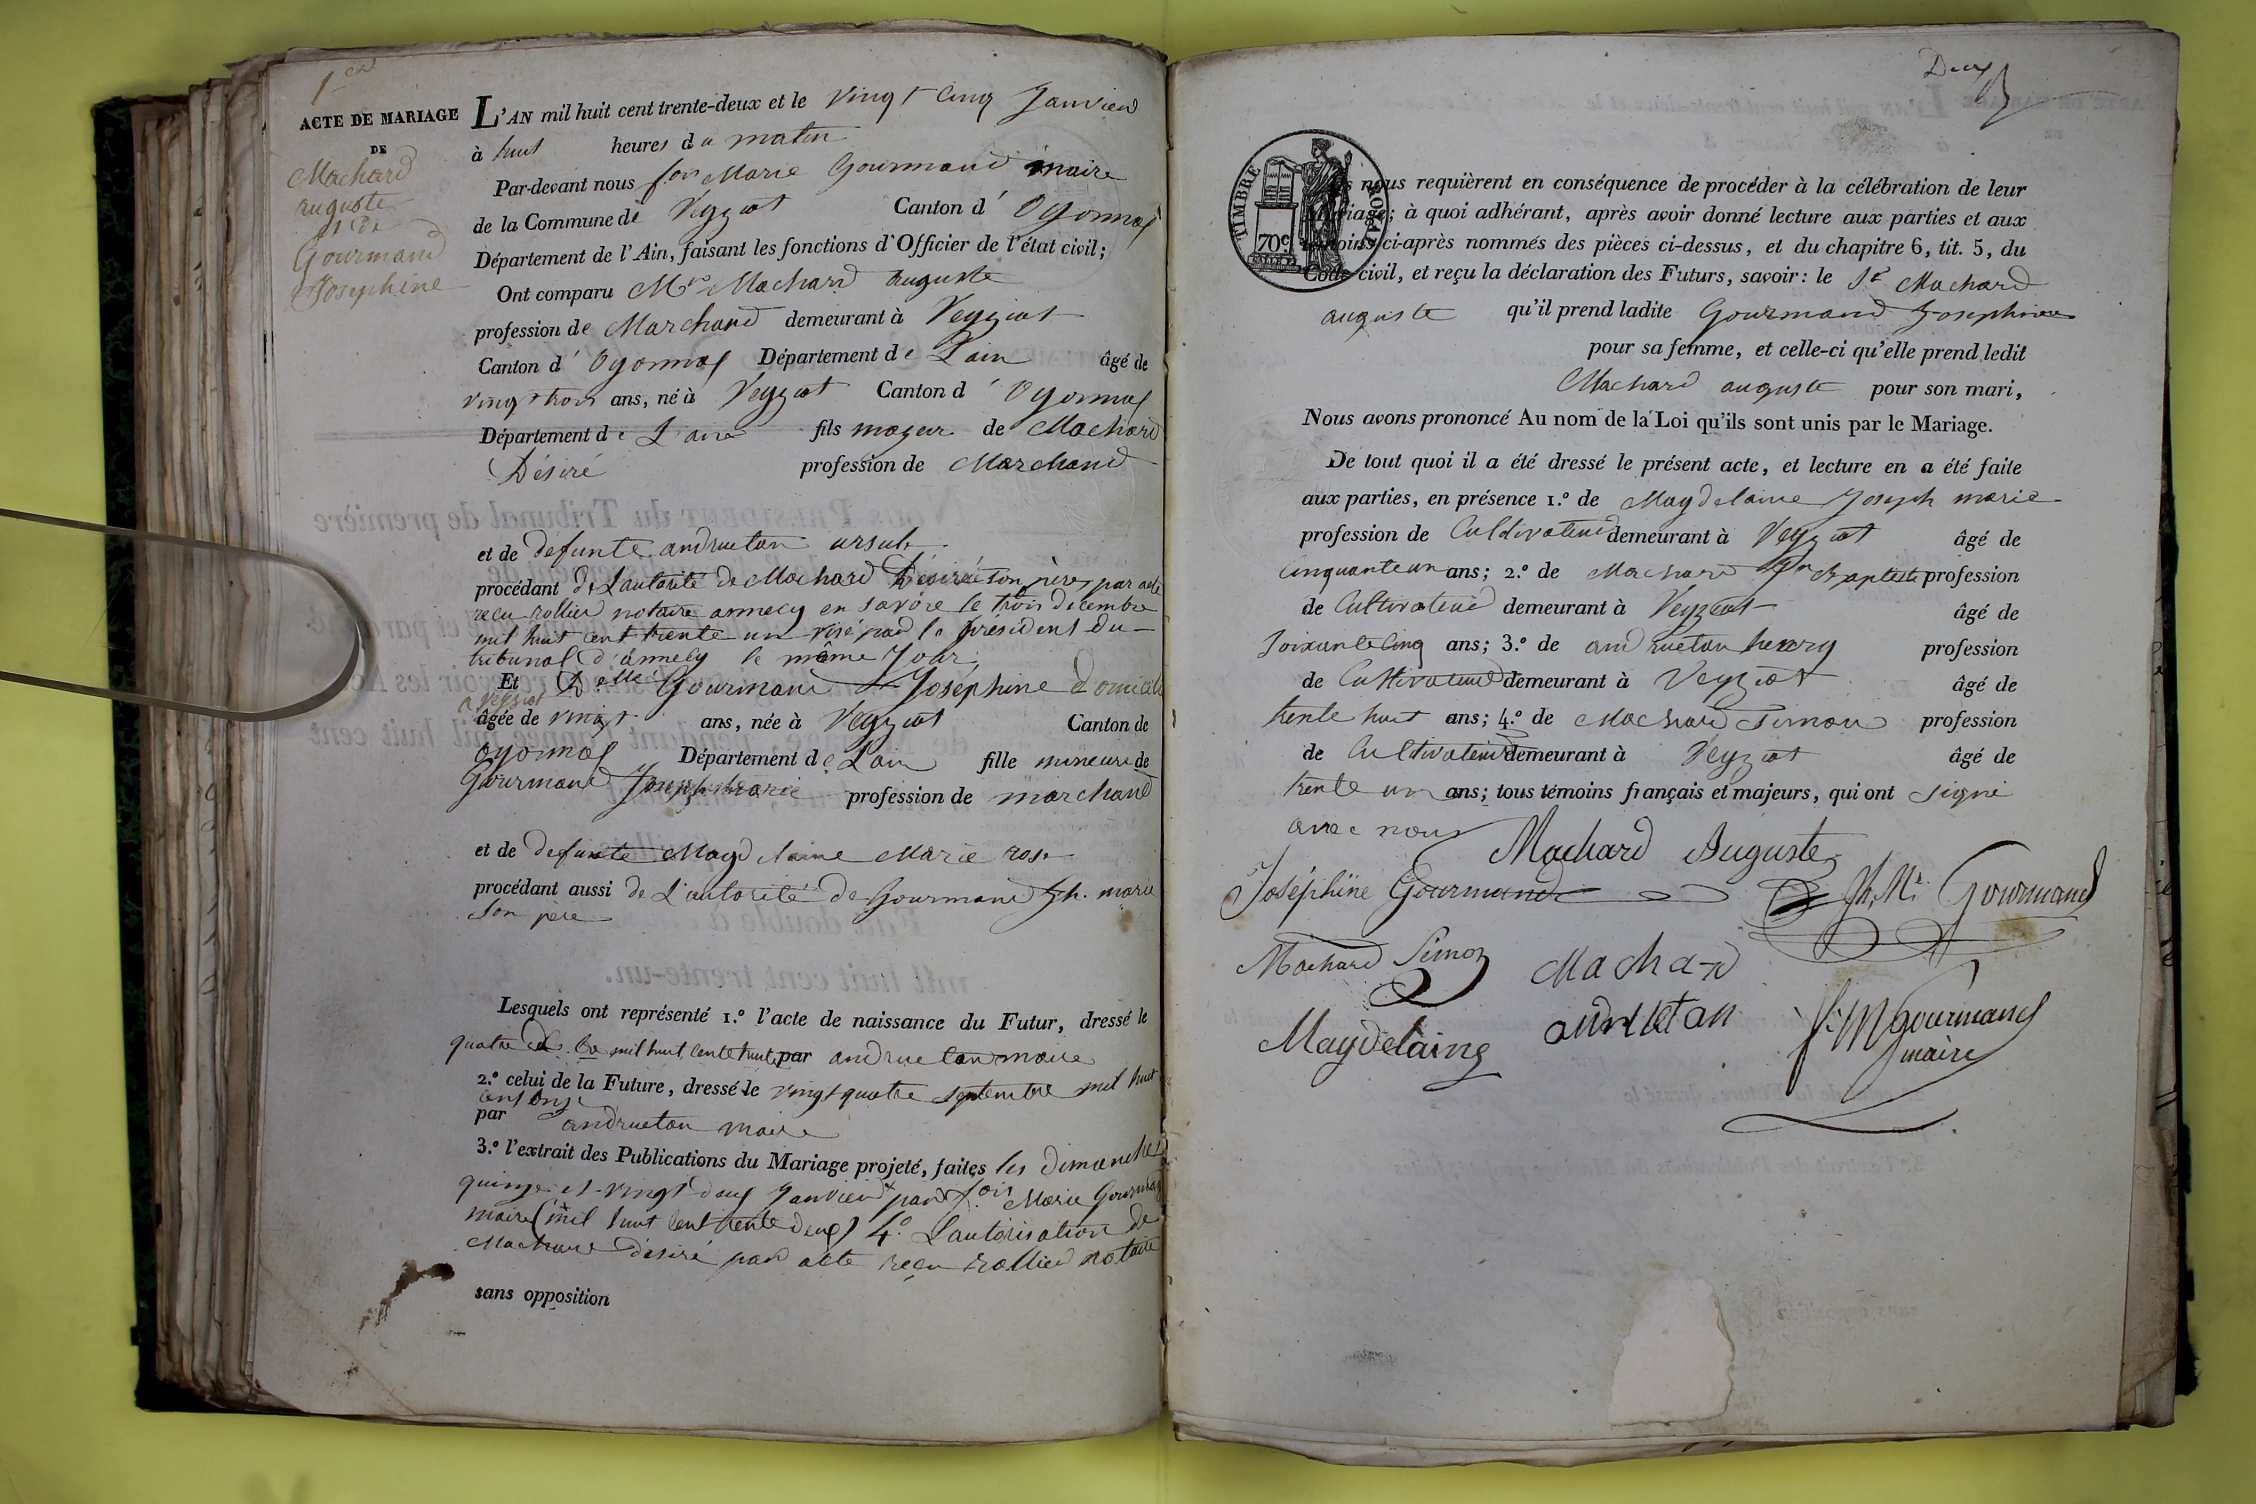 1er
ACTE DE MARIAGE
DE
Machard
auguste
et de
Gourmand
Josephine
L'AN mil huit cent trente-deux et le vingt Cinq Janvier
à huit heures du matin
Par-devant nous fois Marie Gourmand maire
de la Commune de Veyziat Canton d' Oyonnax
Département de l'Ain, faisant les fonctions d'Officier de l'état civil;
Ont comparu Mr Machard auguste
profession de Marchand demeurant à Veyziat
Canton d' Oyonnax Département de L'ain âgé de
vingt trois ans, né à Veyziat Canton d' Oyonnax
Département de L'ain fils majeur de Machard
Désiré profession de Marchand
et de defunte andrueton ursule
procédant de L'autorité de Machard Désiré son père, par acte
reçu rollier notaire annecy en savoie le trois decembre
mil huit cent trente un visé par le président du
tribunal d'annecy le même Jour;
Et Delle Gourmand Joséphine domicilié
a Veyziat
âgée de vingt ans, née à Veyziat Canton de
oyonnax Département de L'ain fille mineure de
Gourmand Joseph marie profession de marchand
et de defunte Magdelaine Marie rose
procédant aussi de L'autorité de Gourmand Jph. marie
son père
Lesquels ont représenté 1.º l'acte de naissance du Futur, dressé le
quatre mil huit cent huit par andrueton maire
2.º celui de la Future, dressé le vingt quatre septembre mil huit
cent onze
par andrueton maire
3.º l'extrait des Publications du Mariage projeté, faites les dimanches
quinze et vingt deux Janvier par fois Marie Gourmand
maire (mil huit cent trente deux) 4.º L'autorisation de
Machard désiré par acte reçu rollier notaire
sans opposition
Deux
TIMBRE ROYAL
70c
nous requièrent en conséquence de procéder à la célébration de leur
mariage; à quoi adhérant, après avoir donné lecture aux parties et aux
témoins ci-après nommés des pièces ci-dessus, et du chapitre 6, tit. 5, du
Code civil, et reçu la déclaration des Futurs, savoir: le Sr Machard
auguste qu'il prend ladite Gourmand Josephine
pour sa femme, et celle-ci qu'elle prend ledit
Machard auguste pour son mari,
Nous avons prononcé Au nom de la Loi qu'ils sont unis par le Mariage.
De tout quoi il a été dressé le présent acte, et lecture en a été faite
aux parties, en présence 1.º de Magdelaine Joseph marie
profession de Cultivateur demeurant à Veyziat âgé de
Cinquante un ans; 2.º de Machard Jn Baptiste profession
de Cultivateur demeurant à Veyziat âgé de
Soixante Cinq ans; 3.º de andrueton henry profession
de Cultivateur demeurant à Veyziat âgé de
trente huit ans; 4.º de Machard Simon profession
de Cultivateur demeurant à Veyziat âgé de
trente un ans; tous témoins français et majeurs, qui ont signé
avec nous
Machard Auguste
Joséphine Gourmand Jh. Mie Gourmand
Machard Simon Machard
Magdelaine andruetan f. M Gourmand
maire